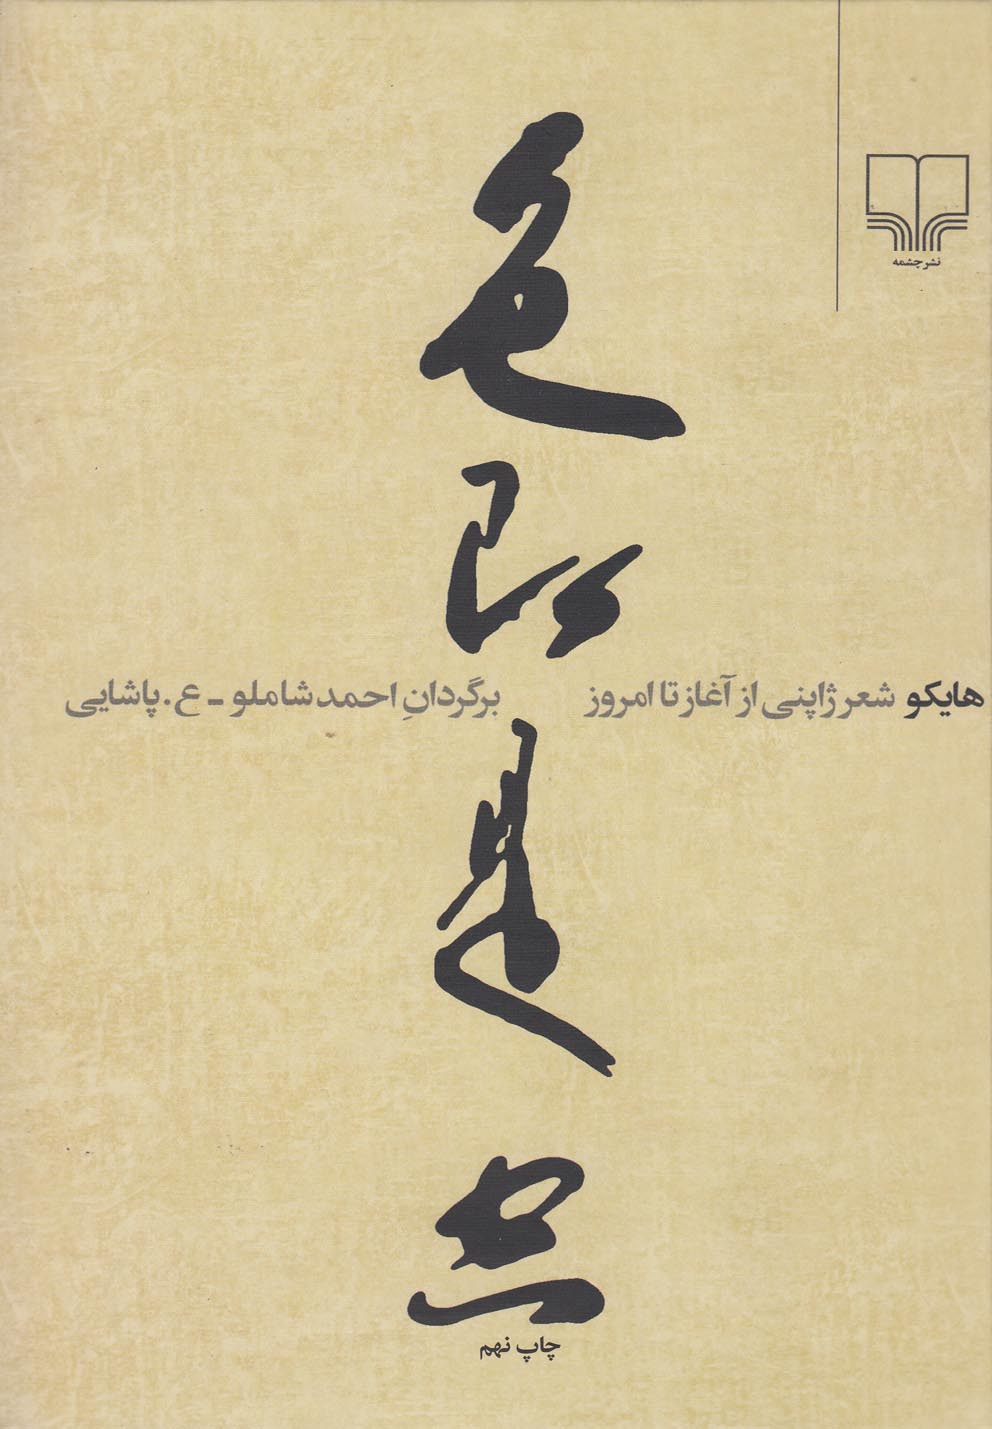 نشرچشمه
色即是空
هایکو شعر ژاپنی از آغاز تا امروز برگردانِ احمد شاملو ـ ع. پاشایی
چاپ نهم